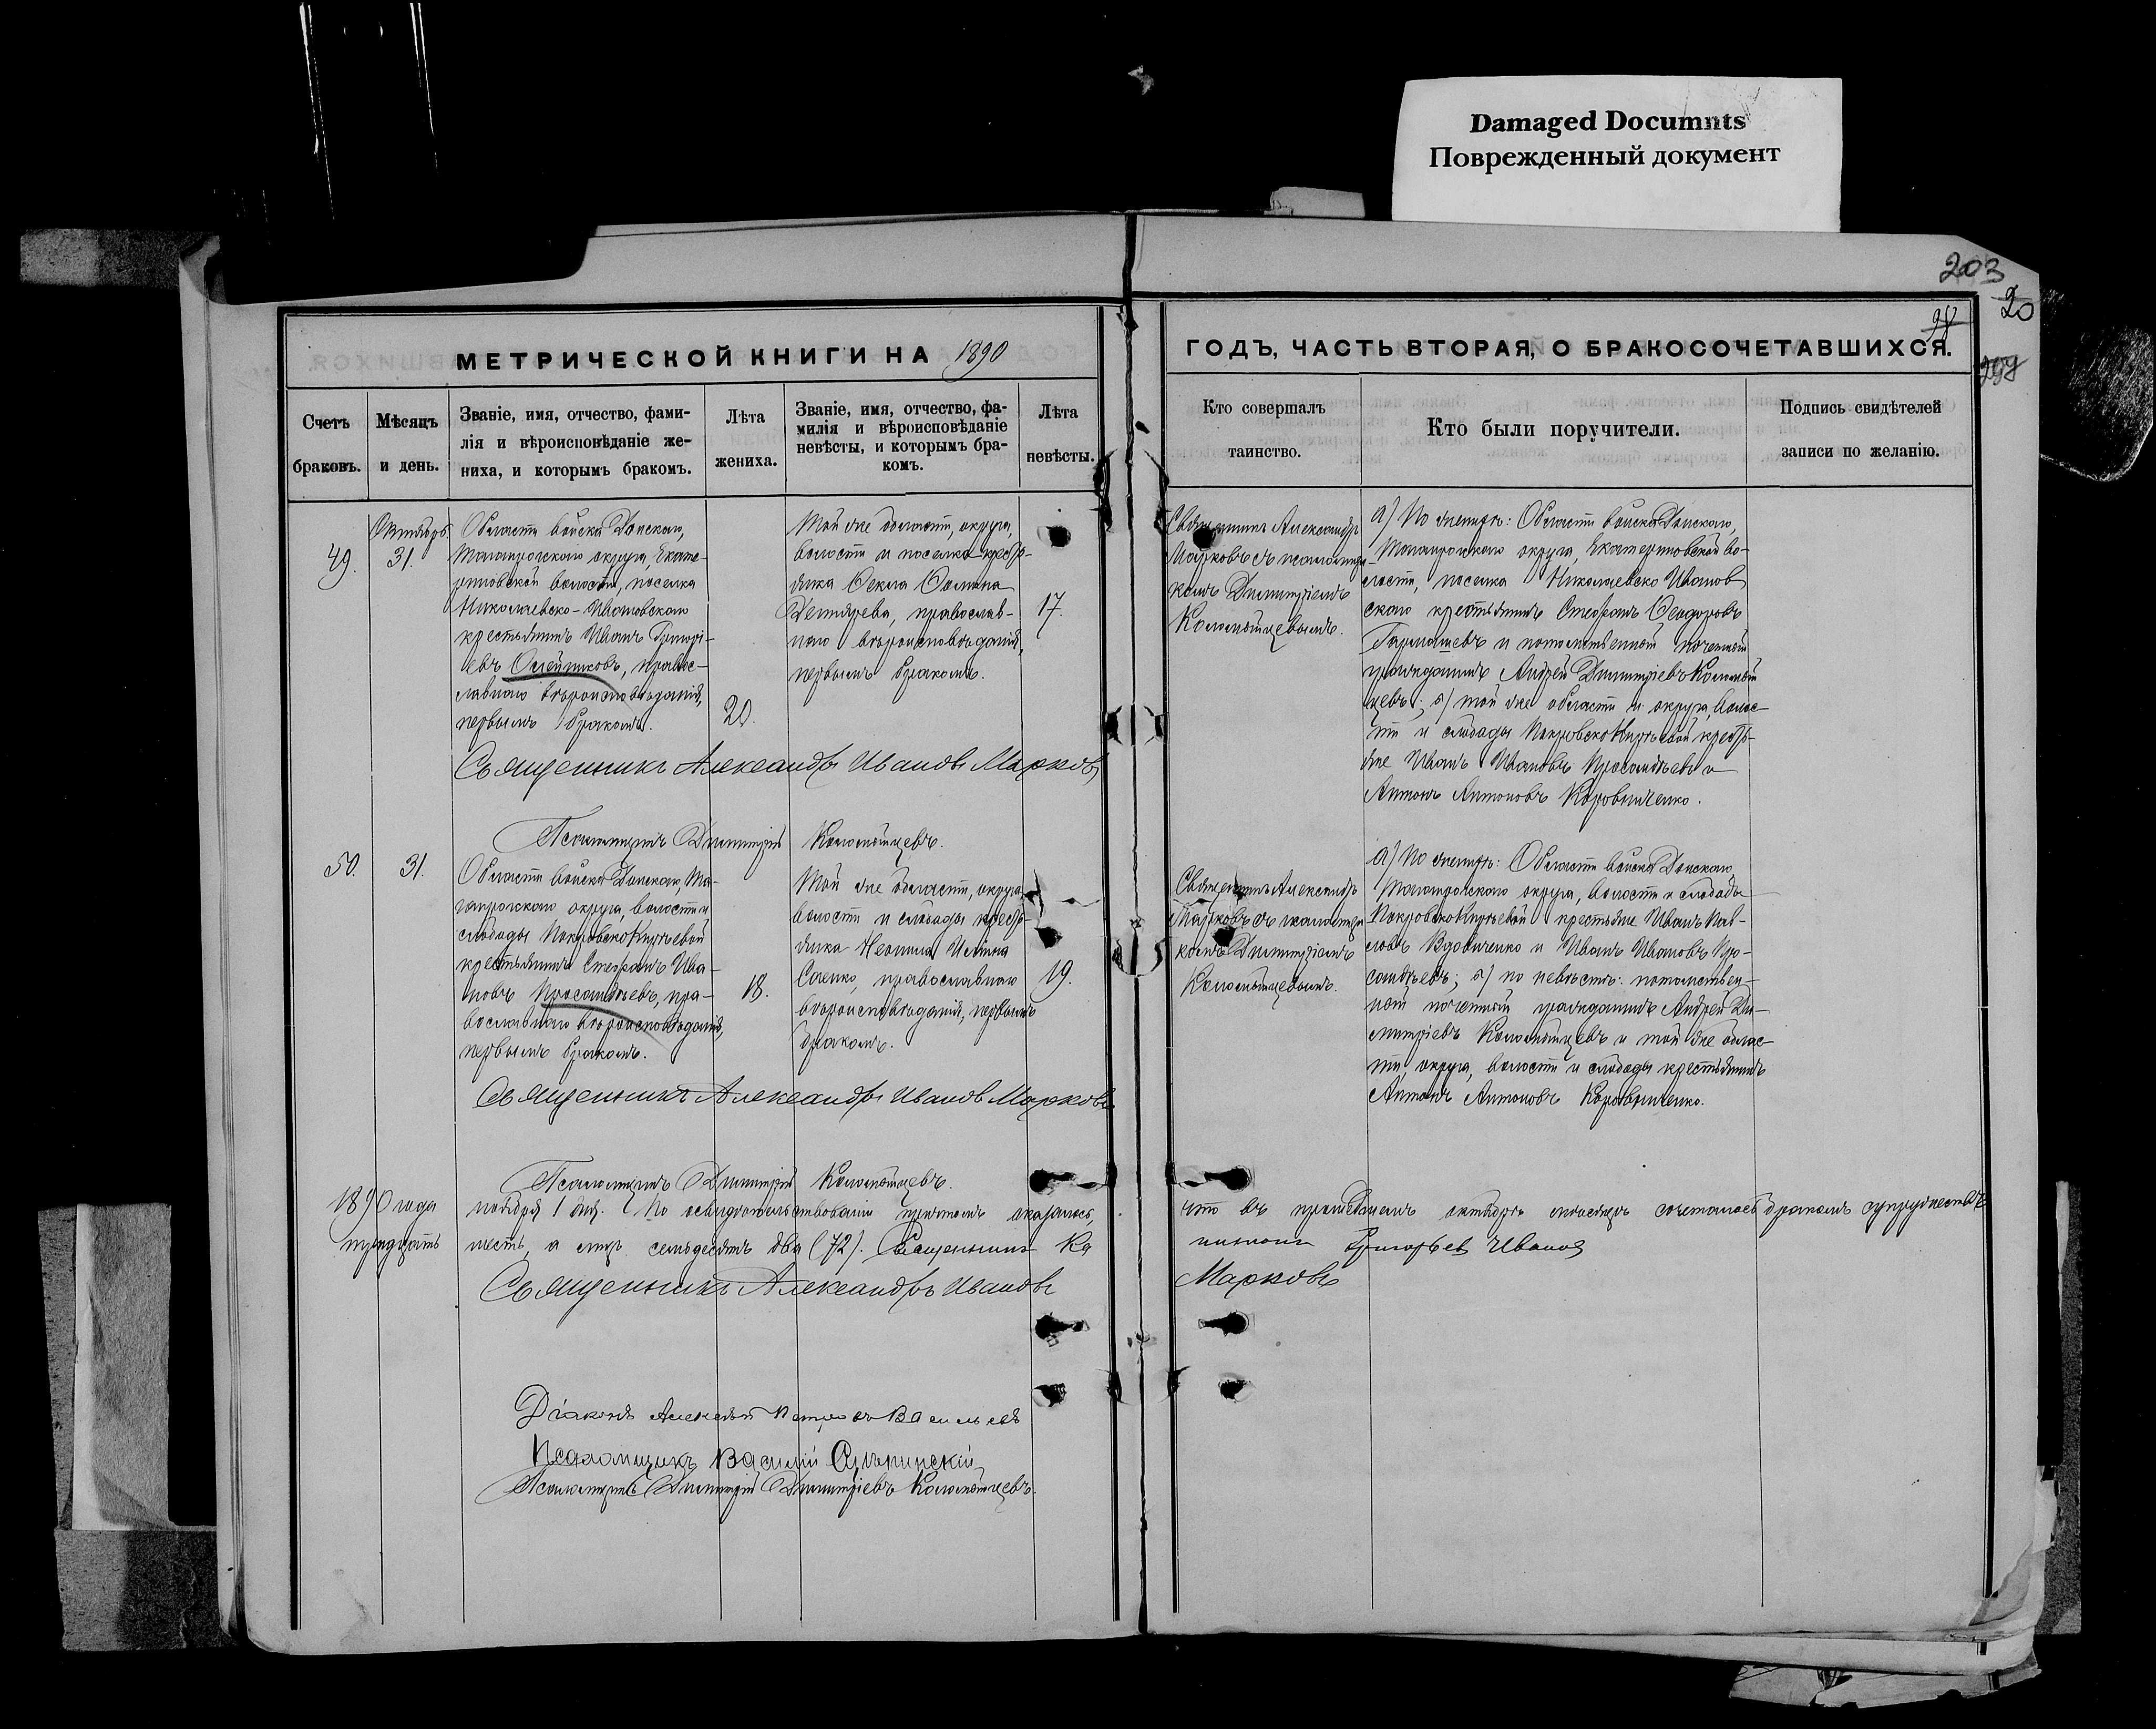 Damaged Documnts
Поврежденный документ
203
20
МЕТРИЧЕСКОЙ КНИГИ НА 1890
ГОДЪ, ЧАСТЬ ВТОРАЯ, О БРАКОСОЧЕТАВШИХСЯ.
Счетъ браковъ.
Мѣсяцъ и день.
Званіе, имя, отчество, фами-
лія и вѣроисповѣданіе же-
ниха, и которымъ бракомъ.
Лѣта
жениха.
Званіе, имя, отчество, фа-
милія и вѣроисповѣданіе
невѣсты, и которымъ бра-
комъ.
Лѣта
невѣсты.
Кто совершалъ
таинство.
Кто были поручители.
Подпись свидѣтелей
записи по желанію.
49.
Октябрь
31.
Области войска Донскаго,
Таганрогскаго округа, Екате-
риновской волости, поселка
Николаевско-Ивановскаго
крестьянинъ Иванъ Григорі-
евъ Олейниковъ, правос-
лавнаго вѣроисповѣданія,
первымъ бракомъ.
20.
Той же области, округа,
волости и поселка кресть-
янка Ѳекла
Дегтярева, православ-
наго вѣроисповѣданія,
первымъ бракомъ.
17.
Священникъ Александръ
Марковъ съ псаломщи-
комъ Димитріемъ
Коломѣйцевымъ.
а) По женихѣ: Области войска Донскаго,
Таганрогскаго округа, Екатериновской во-
лости, поселка Николаевско Иванов
скаго крестьянинъ Стефанъ Ѳеодоровъ
и потомственный почетный
гражданинъ Андрей Димитріевъ Коломѣй
цевъ; б) той же области и округа, волос-
ти и слободы Покровско Кирѣевой кресть-
яне Иванъ Ивановъ Просандѣевъ и
Антонъ Антоновъ Коровниченко.
Священникъ Александръ Ивановъ Марковъ
Псаломщикъ Димитрій Коломѣйцевъ.
50.
31.
Области войска Донскаго, Та-
ганрогскаго округа, волости и
слободы Покровско Кирѣевой
крестьянинъ Стефанъ Ива-
новъ Просандѣевъ, пра-
вославнаго вѣроисповѣданія,
первымъ бракомъ.
18.
Той же области, округа,
волости и слободы кресть-
янка Неонила
православнаго
вѣроисповѣданія, первымъ
бракомъ.
19.
Священникъ Александръ
Марковъ съ псаломщи-
комъ Димитріемъ
Коломѣйцевымъ.
а) По женихѣ: Области войска Донскаго
Таганрогскаго округа, волости и слободы
Покровско Кирѣевой крестьяне Иванъ Пав-
ловъ Вдовиченко и Иванъ Ивановъ Про-
сандѣевъ; б) по невѣстѣ: потомствен-
ный почетный гражданинъ Андрей Ди-
митріевъ Коломѣйцевъ и той же облас-
ти, округа, волости и слободы крестьянинъ
Антонъ Антоновъ Коровниченко.
Священникъ Александръ Ивановъ Марковъ
Псаломщикъ Димитрій Коломѣйцевъ.
1890 года ноября 1 дня. По освидѣтельствованіи причтомъ оказалось, что въ прошедшемъ октябрѣ мѣсяцѣ сочеталось бракомъ супружествъ
тридцать шесть, а лицъ семьдесятъ два (72). Священникъ Григорьев Иванов
Священникъ Александръ Ивановъ Марковъ
Діаконъ Алексѣй Петровъ Васильевъ
Псаломщикъ Василій
Псаломщикъ Димитрій Димитріевъ Коломѣйцевъ.